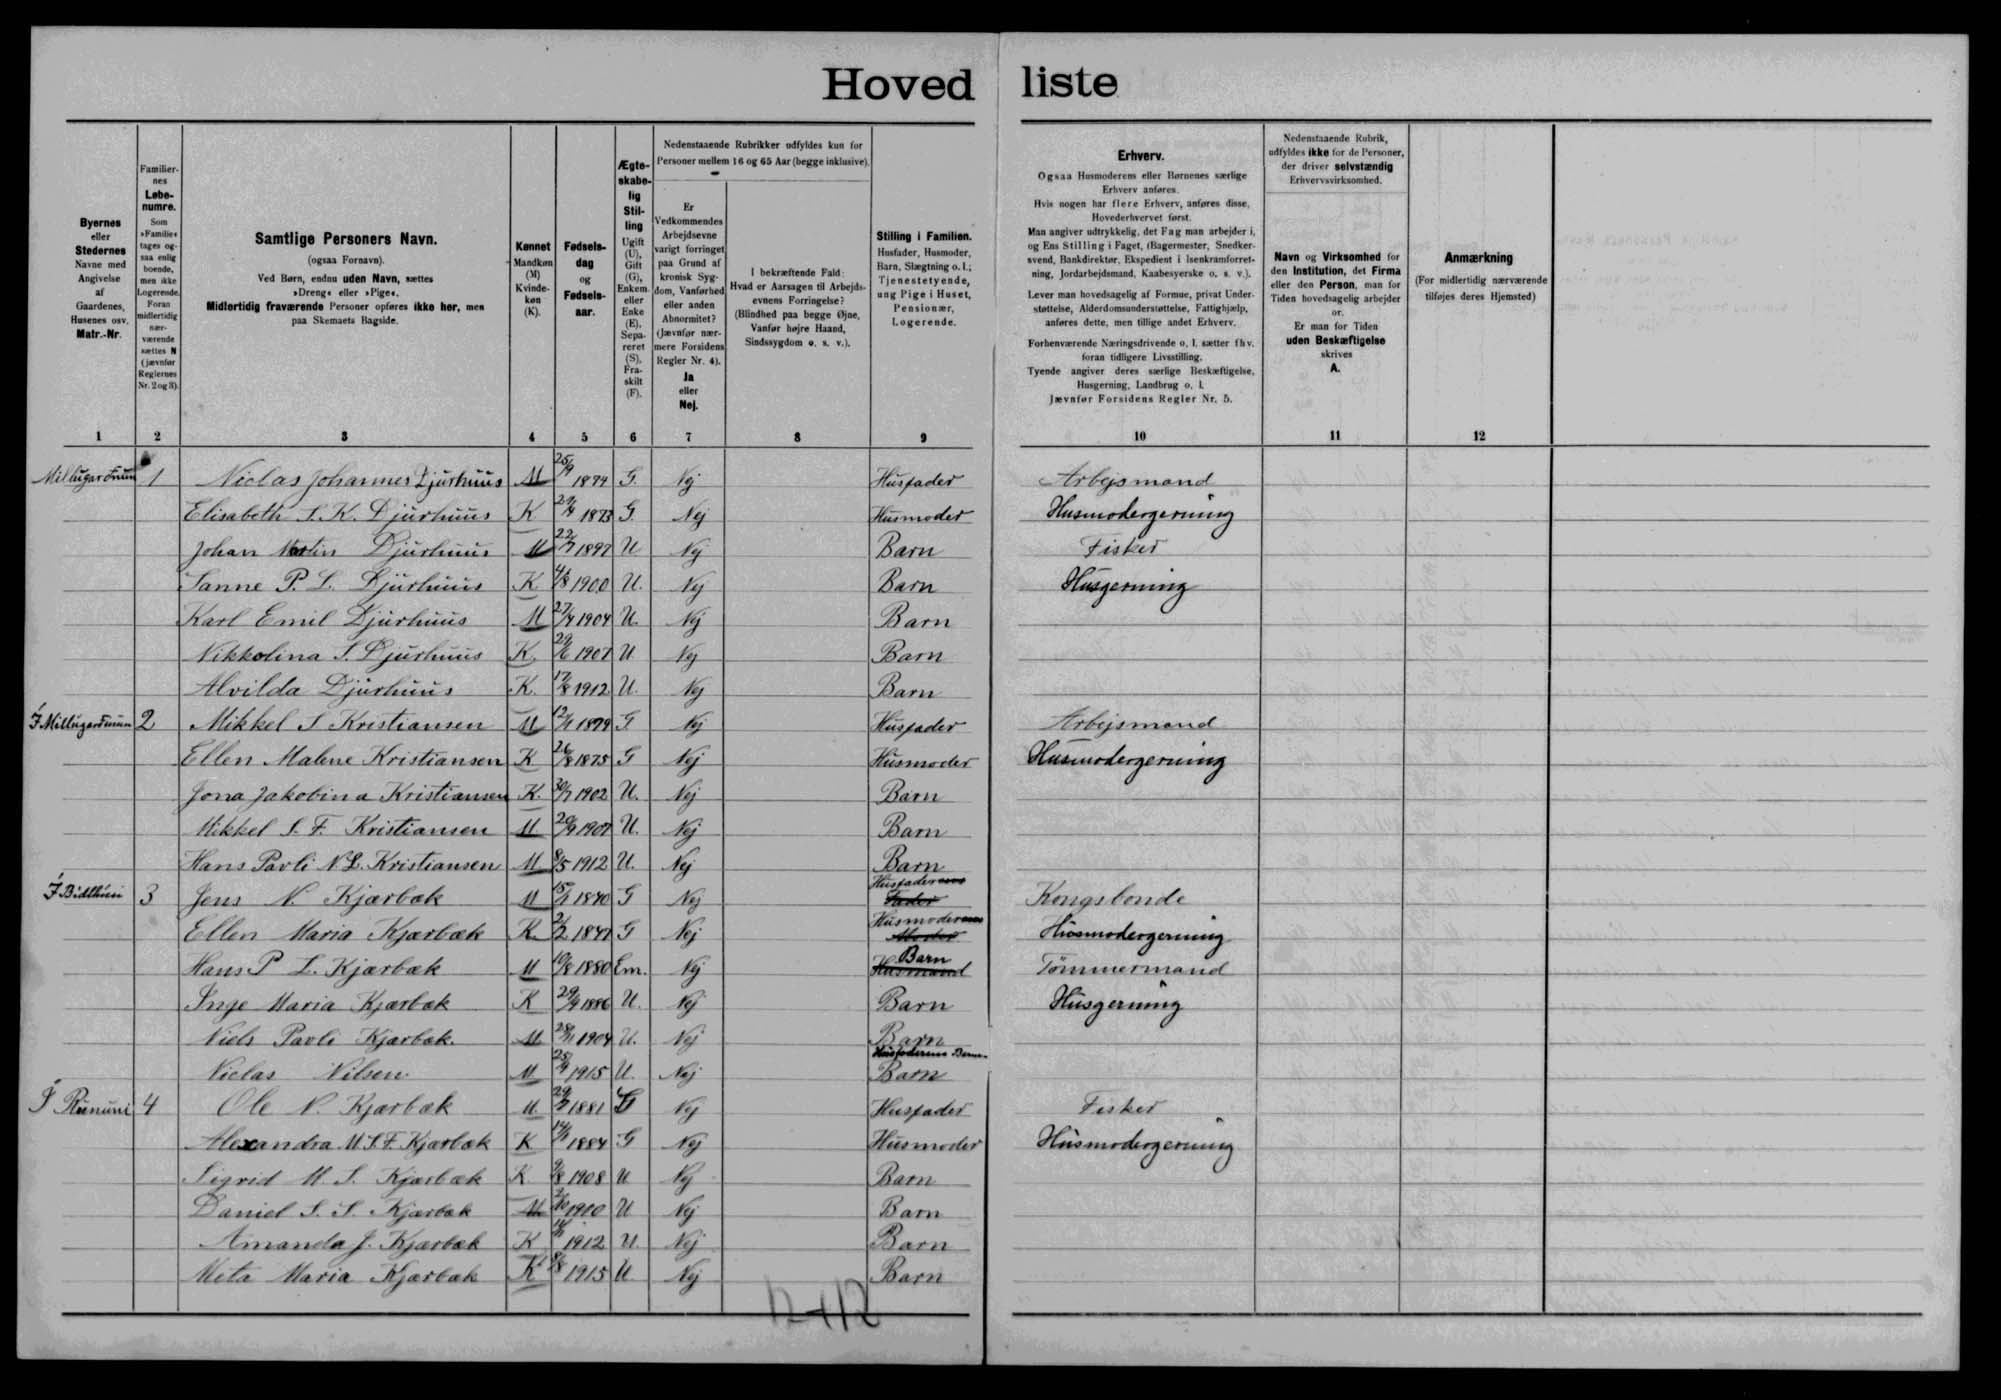 Hoved liste
Byernes eller Stedernes Navne med Angivelse af Gaardenes, Husenes osv. Matr.-Nr.
Familiernes Løbenumre. Som »Familie« tages ogsaa enlig boende, men ikke Logerende. Foran midlertidig nærværende sættes N (jævnfør Reglernes Nr. 2 og 3).
Samtlige Personers Navn. (ogsaa Fornavn). Ved Børn, endnu uden Navn, sættes »Dreng« eller »Pige«. Midlertidig fraværende Personer opføres ikke her, men paa Skemaets Bagside.
Kønnet Mandkøn (M) Kvindekøn (K).
Fødselsdag og Fødselsaar.
Ægteskabelig Stilling Ugift (U), Gift (G), Enkemeller Enke (E), Separeret (S), Fraskilt (F).
Nedenstaaende Rubrikker udfyldes kun for Personer mellem 16 og 65 Aar (begge inklusive).
Er Vedkommendes Arbejdsevne varigt forringet paa Grund af kronisk Sygdom, Vanførhed eller anden Abnormitet? (Jævnfør nærmere Forsidens Regler Nr. 4). Ja eller Nej.
I bekræftende Fald: Hvad er Aarsagen til Arbejdsevnens Forringelse? (Blindhed paa begge Øjne, Vanfør højre Haand, Sindssygdom o. s. v.).
Stilling i Familien. Husfader, Husmoder, Barn, Slægtning o. l.; Tjenestetyende, ung Pige i Huset, Pensionær, Logerende.
Erhverv.
Ogsaa Husmoderens eller Børnenes særlige Erhverv anføres.
Hvis nogen har flere Erhverv, anføres disse, Hovederhvervet først.
Man angiver udtrykkelig, det Fag man arbejder i, og Ens Stilling i Faget, (Bagermester, Snedkersvend, Bankdirektør, Ekspedient i Isenkramforretning, Jordarbejdsmand, Kaabesyerske o. s. v.).
Lever man hovedsagelig af Formue, privat Understøttelse, Alderdomsunderstøttelse, Fattighjælp, anføres dette, men tillige andet Erhverv.
Forhenværende Næringsdrivende o. l. sætter fhv. foran tidligere Livsstilling.
Tyende angiver deres særlige Beskæftigelse, Husgerning, Landbrug o. l.
Jævnfør Forsidens Regler Nr. 5.
Nedenstaaende Rubrik, udfyldes ikke for de Personer, der driver selvstændig Erhvervsvirksomhed.
Navn og Virksomhed for den Institution, det Firma eller den Person, man for Tiden hovedsagelig arbejder
or.
Er man for Tiden uden Beskæftigelse skrives A.
Anmærkning (For midlertidig nærværende tilføjes deres Hjemsted)
1 2 3 4 5 6 7 8 9 10 11 12
Millugardnum 1 Niclas Johannes Djurhuus M 25/9 1874 G. Nej Husfader Arbejsmand
Elisabeth S. K. Djurhuus K 1873 G. Nej Husmoder Husmodergerning
Johan Martin Djurhuus M 1897 U Nej Barn Fisker
Sanne P. L. Djurhuus K 4/8 1900 U. Nej Barn Husgerning
Karl Emil Djurhuus M 1904 U. Nej Barn
Nikkolina S. Djurhuus K. 29/6 1907 U Nej Barn
Alvilda Djurhuus K. 17/8 1912 U. Nej Barn
Í Millugardnum 2 Mikkel S Kristiansen M 1879 G Nej Husfader Arbejsmand
Ellen Malene Kristiansen K 26/8 1875 G Nej Husmoder Husmodergerning
Jona Jakobina Kristiansen K. 1902 U. Nej Barn
Mikkel S. F. Kristiansen M. 1907 U. Nej Barn
Hans Pavli N. L. Kristiansen M 8/5 1912 U. Nej Barn
3 Jens N. Kjærbæk M 1840 G Nej Husfader Kongsbonde
Ellen Maria Kjærbæk K. 1847 G Nej Husmoder Husmodergerning
Hans P L. Kjærbæk M 19/8 1880 Em. Nej Barn Husmand Tömmermand
Inge Maria Kjærbæk K 1886 U. Nej Barn Husgerning
Niels Pavli Kjærbæk. M 1904 U. Nej Barn
Niclas Nilsen. M 1915 U Nej Husfaderens Barne- Barn
Í 4 Ole N. Kjærbæk M. 1881 G Nej Husfader Fisker
Alexandra M. S. F. Kjærbæk K 1884 G Nej Husmoder Husmodergerning
Sigrid M. S. Kjærbæk K. 9/8 1908 U Nej Barn
Daniel S. S. Kjærbæk M 1910 U Nej Barn
Amanda J. Kjærbæk K 1912 U. Nej Barn
Meta Maria Kjærbæk K 8/8 1915 U Nej Barn
12+12